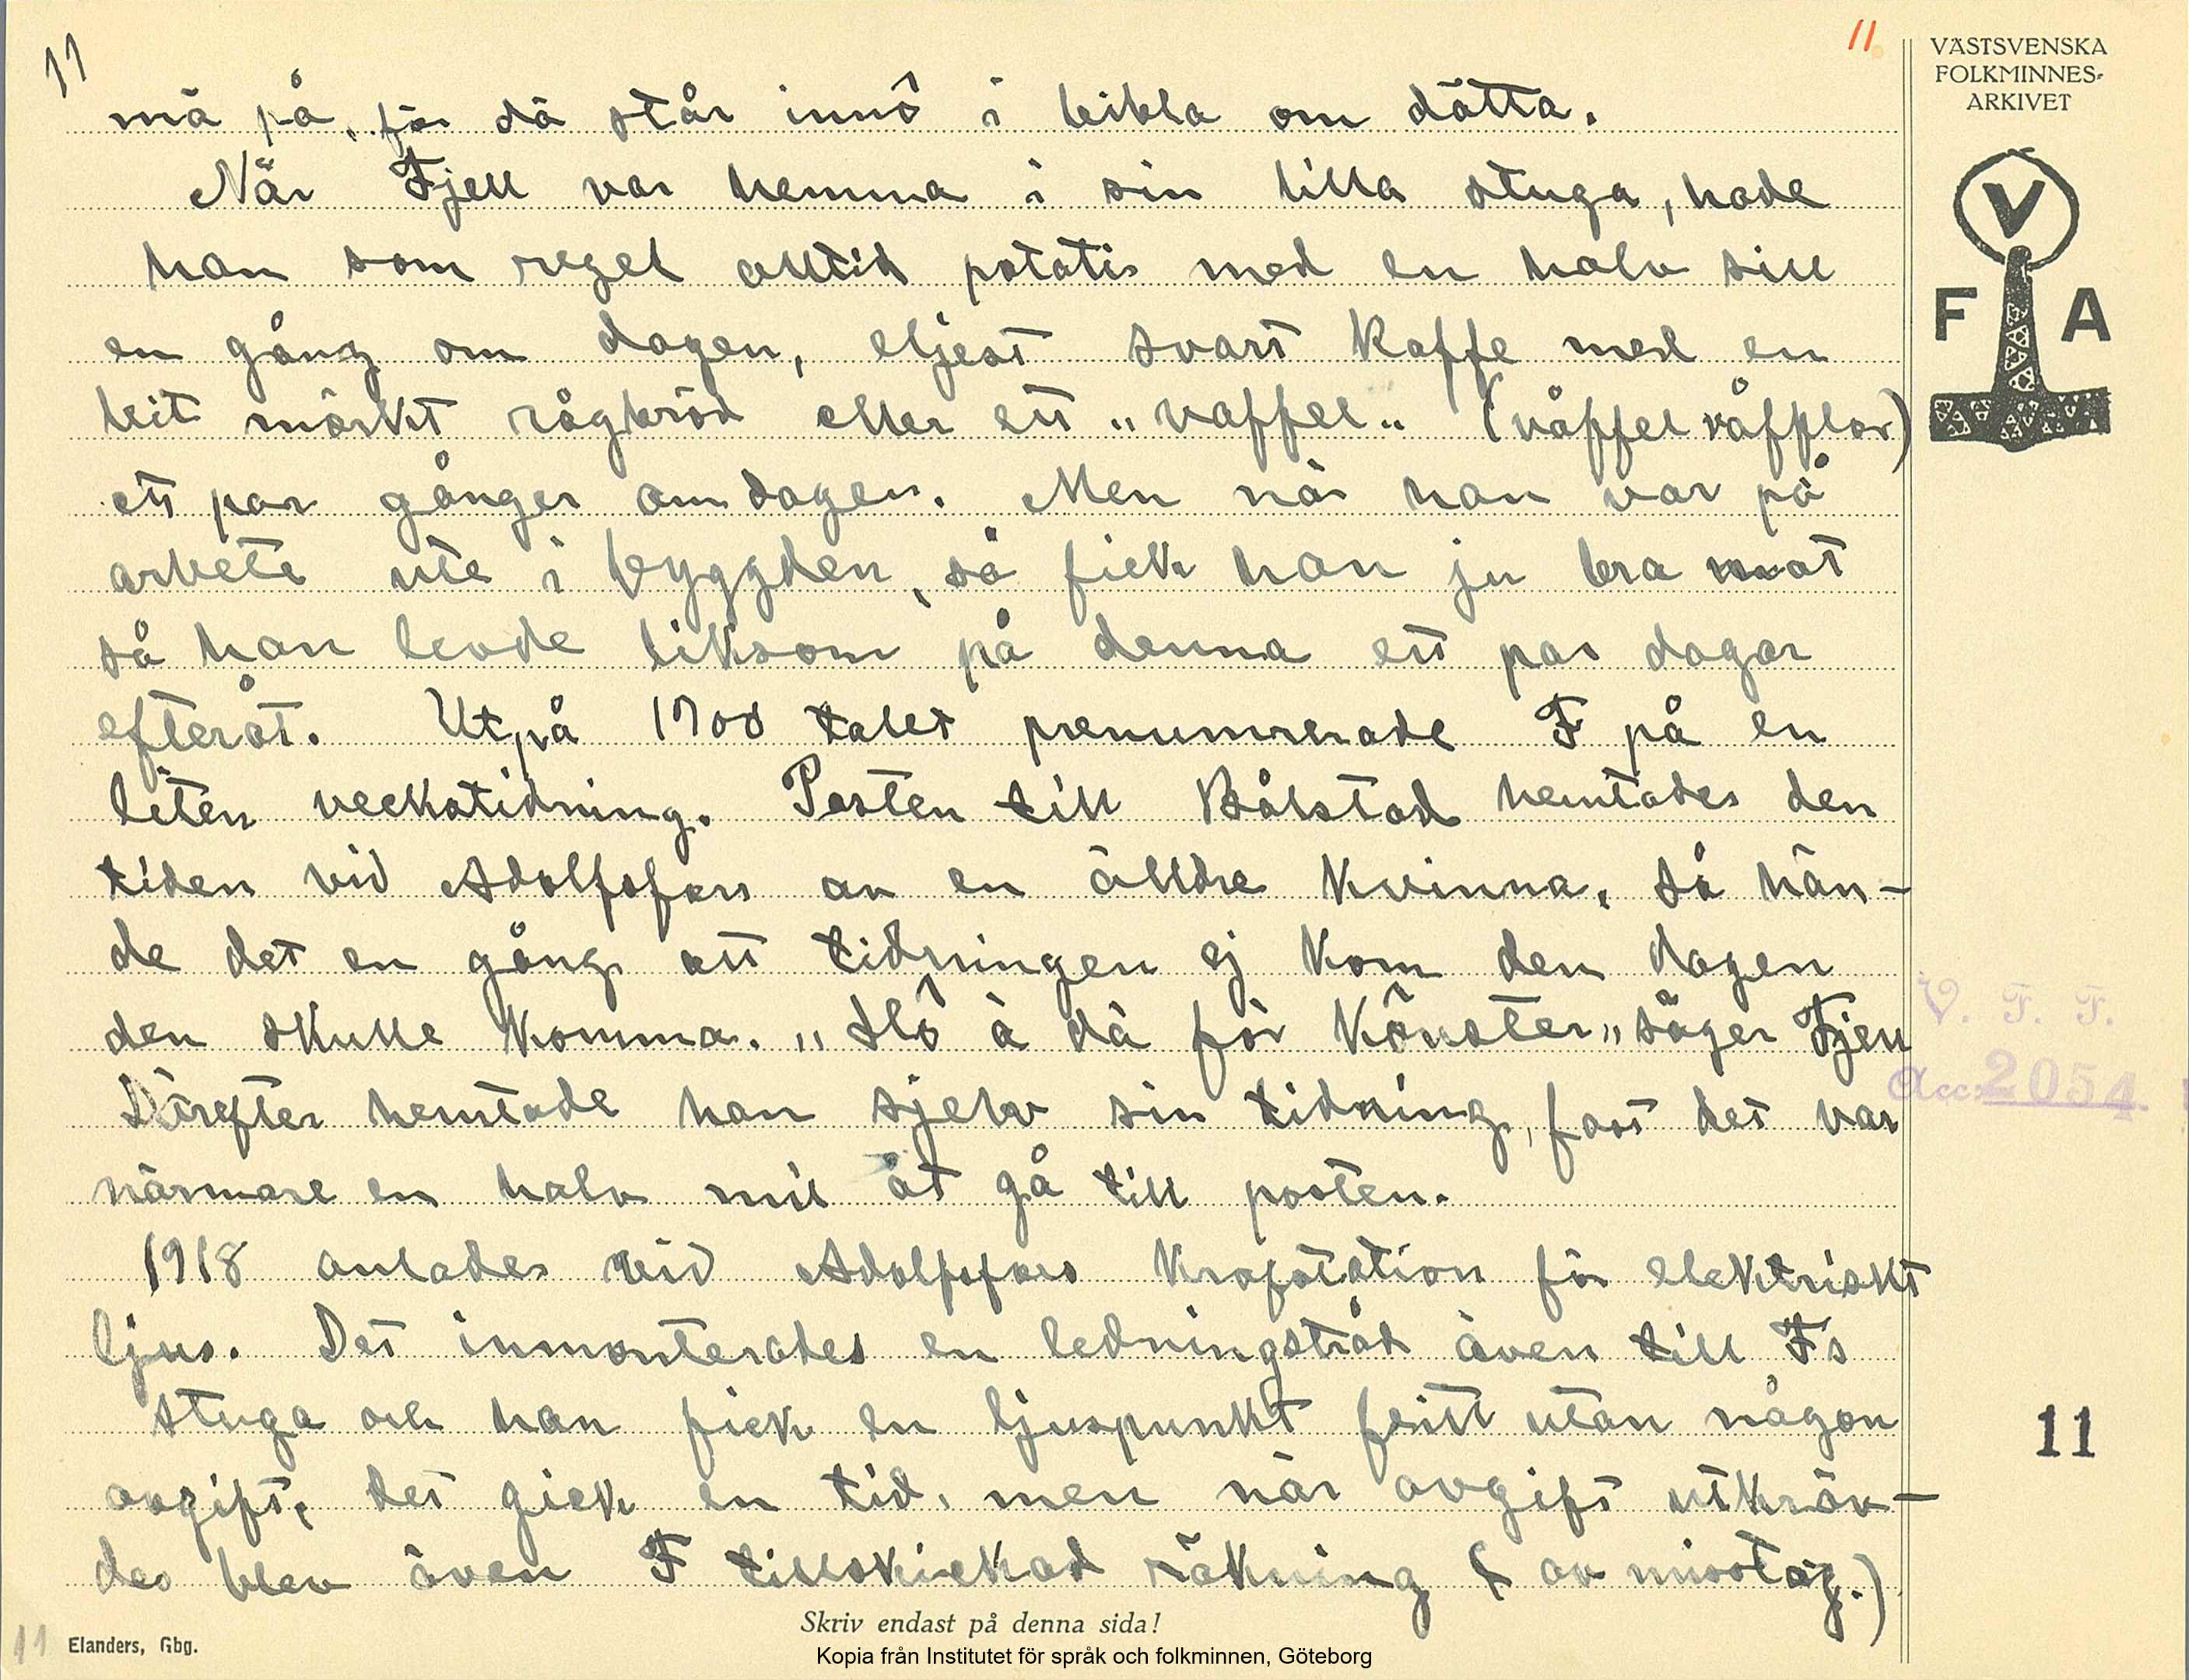 11
11
VÄSTSVENSKA
FOLKMINNES-
ARKIVET
V
F A
mä på, för dä står innô i bibla om dätta.
När Fjell var hemma i sin lilla stuga, hade
han som regel alltid potatis med en halv sill
en gång om dagen, eljest svart kaffe med en
bit mörkt rågbröd eller ett „vaffel„ (våffel våfflor)
ett par gånger om dagen. Men när han var på
arbete ute i byggden, så fick han ju bra mat
så han levde liksom på denna ett par dagar
efteråt. Utpå 1900 talet prenumrerade F på en
liten veckotidning. Posten till Bålstad hemtades den
tiden vid Adolfsfors av en älldre kvinna, så hän-
de det en gång att tidningen ej kom den dagen
den skulle komma. „ Hô ä dä för kônster„ säger Fjell
Därefter hemtade han sjelv sin tidning, fast det var
närmare en halv mil åt gå till posten.
1918 anlades vid Adolfsfors krafstation för elektriskt
ljus. Det inmonterades en ledningstråd även till Fs
stuga och han fick en ljuspunkt fritt utan någon
avgift, det gick en tid, men när avgift utkräv-
des blev även F tillskickad räkning ( av misstag.)
V. F. F.
Acc: 2054
11
Skriv endast på denna sida!
11 Elanders, Gbg.
Kopia från Institutet för språk och folkminnen, Göteborg